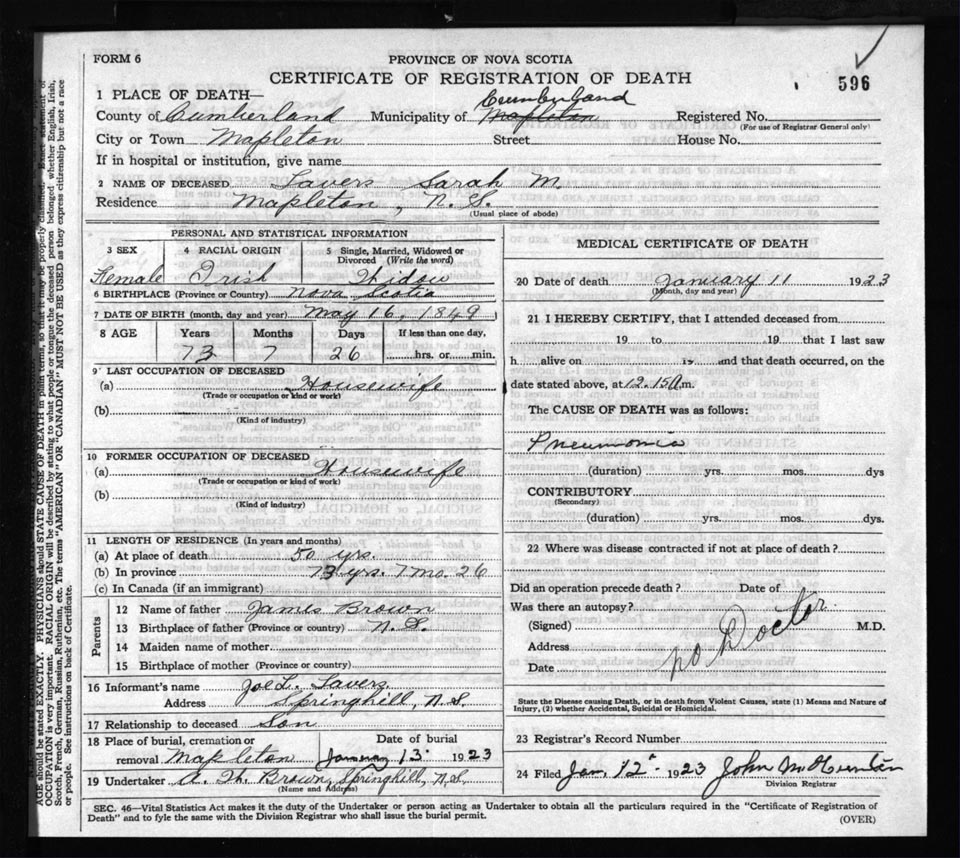 FORM 6
PROVINCE OF NOVA SCOTIA
CERTIFICATE OF REGISTRATION OF DEATH
596
1 PLACE OF DEATH—
Cumberland
County of Cumberland Municipality of Mapleton Registered No.
(For use of Registrar General only)
City or Town Mapleton Street House No.
If in hospital or institution, give name
2 NAME OF DECEASED Lavers Sarah M.
Residence Mapleton, N.S.
(Usual place of abode)
PERSONAL AND STATISTICAL INFORMATION
3 SEX 4 RACIAL ORIGIN 5 Single, Married, Widowed or Divorced (Write the word)
Female Irish Widow
6 BIRTHPLACE (Province or Country) Nova Scotia
7 DATE OF BIRTH (month, day and year) May 16, 1849
8 AGE Years Months Days If less than one day,
73 7 26 hrs. or min.
9 LAST OCCUPATION OF DECEASED
(a) Housewife
(Trade or occupation or kind or work)
(b)
(Kind of industry)
10 FORMER OCCUPATION OF DECEASED
(a) Housewife
(Trade or occupation or kind of work)
(b)
(Kind of industry)
11 LENGTH OF RESIDENCE (In years and months)
(a) At place of death 50 yrs.
(b) In province 73 yrs. 7 mo. 26
(c) In Canada (if an immigrant)
Parents
12 Name of father James Brown
13 Birthplace of father (Province or country) N.S.
14 Maiden name of mother
15 Birthplace of mother (Province or country)
16 Informant's name Joe L. Lavers
Address Springhill, N.S.
17 Relationship to deceased Son
18 Place of burial, cremation or Date of burial
removal Mapleton January 13 1923
19 Undertaker A. Th. Brown, Springhill, N.S.
(Name and Address)
MEDICAL CERTIFICATE OF DEATH
20 Date of death January 11 1923
(Month, day and year)
21 I HEREBY CERTIFY, that I attended deceased from
19 to 19 that I last saw
h alive on 19 and that death occurred, on the
date stated above, at 12.15 a m.
The CAUSE OF DEATH was as follows:
Pneumonia
(duration) yrs. mos. dys
CONTRIBUTORY
(Secondary)
(duration) yrs. mos. dys.
22 Where was disease contracted if not at place of death?
Did an operation precede death? Date of
Was there an autopsy?
(Signed) M.D.
Address
no Doctor
Date
State the Disease causing Death, or in death from Violent Causes, state (1) Means and Nature of
Injury, (2) whether Accidental, Suicidal or Homicidal.
23 Registrar's Record Number
24 Filed Jan 12 1923 John
Division Registrar
SEC. 46—Vital Statistics Act makes it the duty of the Undertaker or person acting as Undertaker to obtain all the particulars required in the "Certificate of Registration of
Death" and to fyle the same with the Division Registrar who shall issue the burial permit.
(OVER)
AGE should be stated EXACTLY. PHYSICIANS should STATE CAUSE OF DEATH in plain terms, so that it may be properly classified. Exact statement of
OCCUPATION is very important. RACIAL ORIGIN will be described by stating to what people or tongue the deceased person belonged whether English, Irish,
Scotch, French, German, Russian, Ruthenian, etc. The terms "AMERICAN" OR "CANADIAN" MUST NOT BE USED as they express citizenship but not a race
or people. See instructions on back of Certificate.